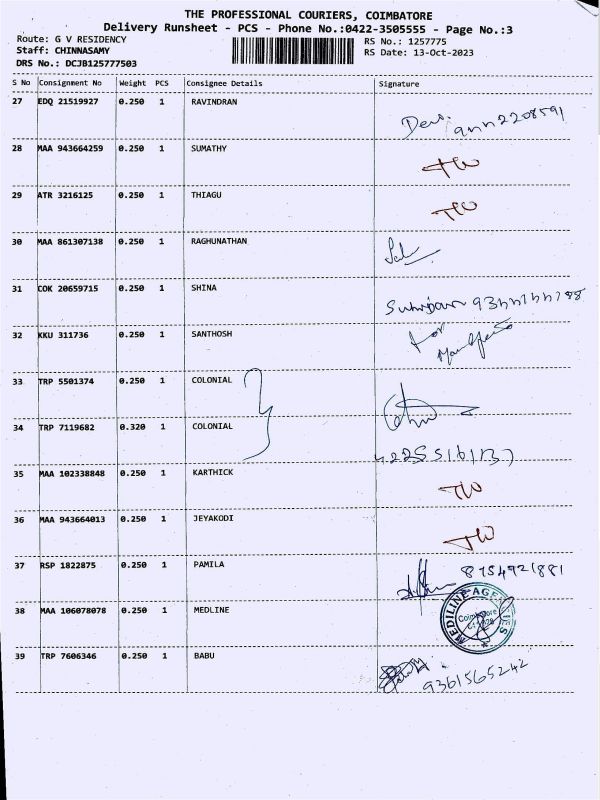 THE PROFESSIONAL COURIERS, COIMBATORE
Delivery Runsheet - PCS - Phone No.:0422-3505555 - Page No.:3
Route: G V RESIDENCY RS No.: 1257775
Staff: CHINNASAMY RS Date: 13-Oct-2023
DRS No.: DCJB125777503
S No Consignment No Weight PCS Consignee Details Signature
27 EDQ 21519927 0.250 1 RAVINDRAN
28 MAA 943664259 0.250 1 SUMATHY
29 ATR 3216125 0.250 1 THIAGU
30 MAA 861307138 0.250 1 RAGHUNATHAN
31 COK 20659715 0.250 1 SHINA
32 KKU 311736 0.250 1 SANTHOSH
33 TRP 5501374 0.250 1 COLONIAL
34 TRP 7119682 0.320 1 COLONIAL
35 MAA 102338848 0.250 1 KARTHICK
36 MAA 943664013 0.250 1 JEYAKODI
37 RSP 1822875 0.250 1 PAMILA 8754921881
38 MAA 106078078 0.250 1 MEDLINE
MEDILINE Coimbatore
39 TRP 7606346 0.250 1 BABU
9361565242